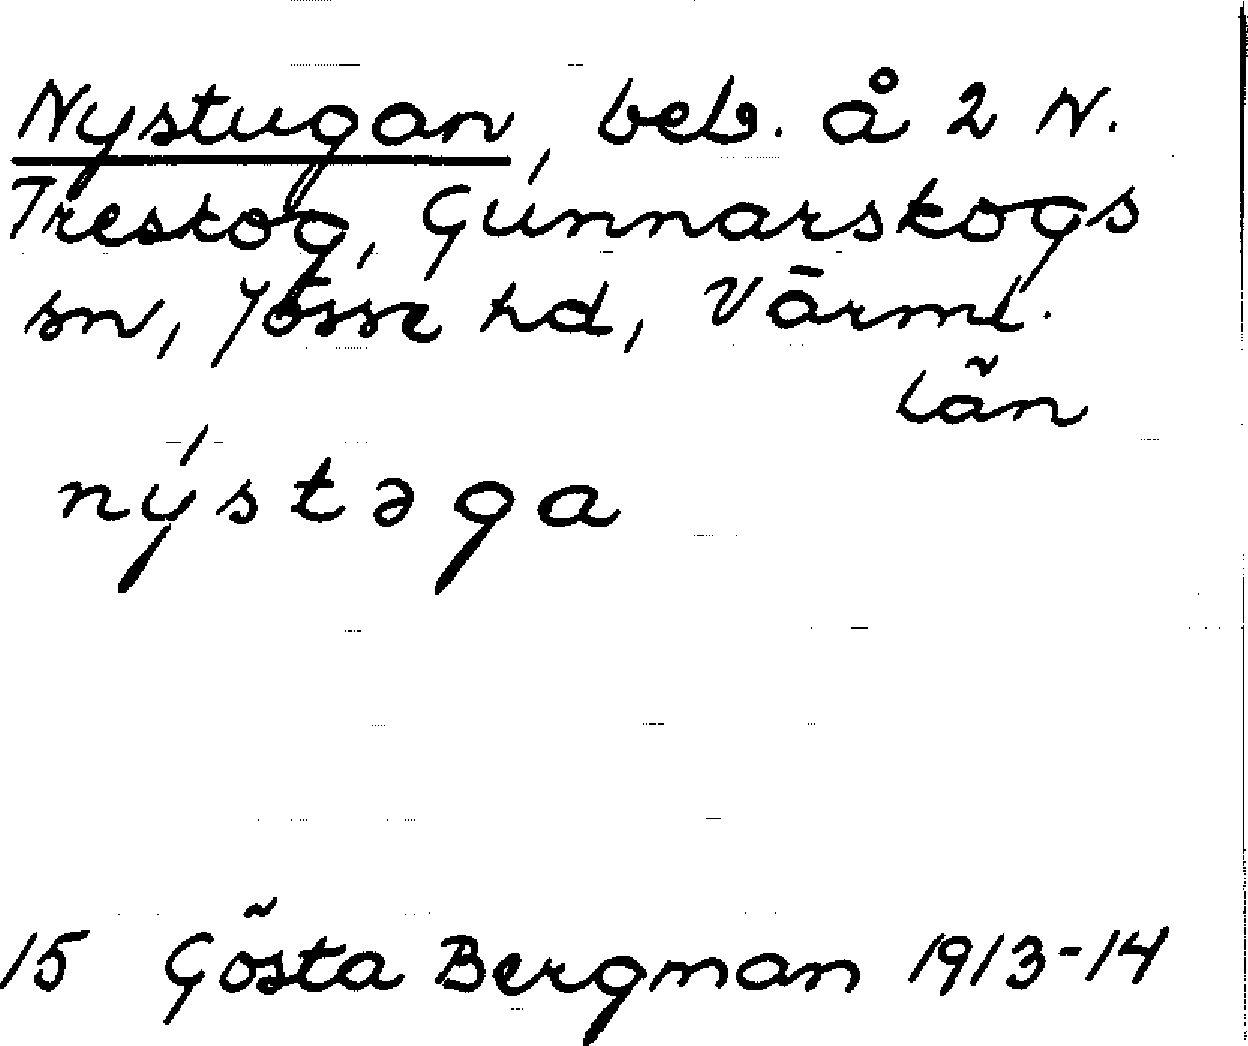 Nystugan, beb. å 2 N.
Treskog, Gunnarskogs
sn, Jösse hd, Värml.
län
nýstəga
15 Gösta Bergman 1913-14